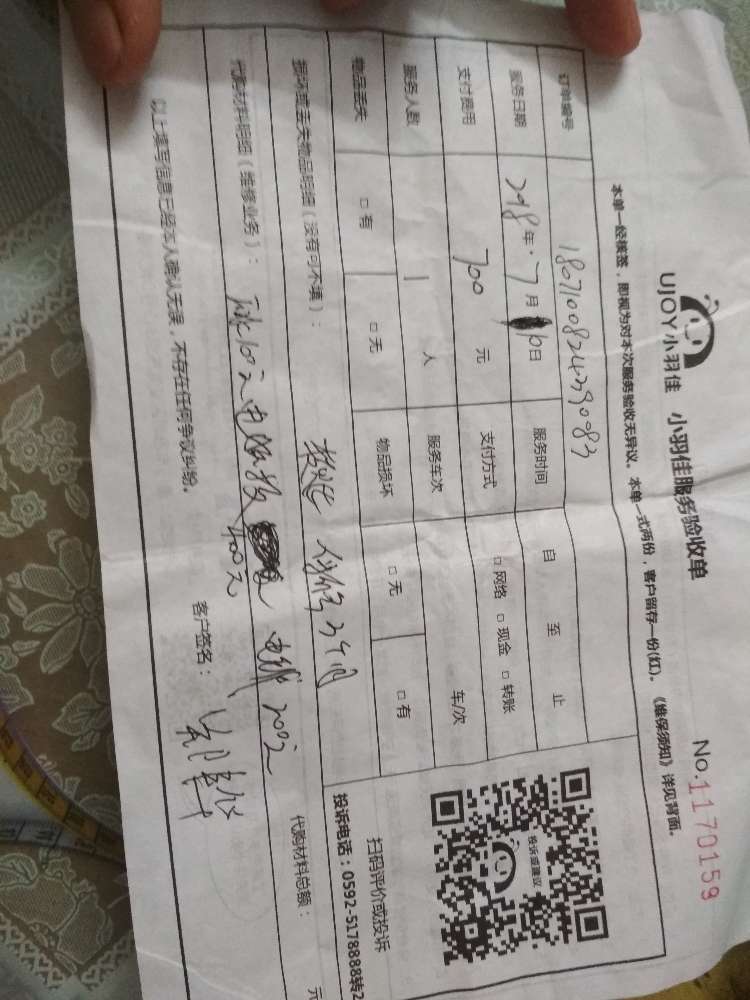 UJOY小羽佳 小羽佳服务验收单 No.1170159
本单一经核签，即视为对本次服务验收无异议。本单一式两份，客户留存一份(红)。《维保须知》详见背面。
订单编号 180710082439083
服务日期 2018年·7月10日 服务时间 自 至 止
支付费用 700 元 支付方式 □网络 □现金 □转账
服务人数 1 人 服务车次 车/次
物品丢失 □有 □无 物品损坏 □无 □有
投诉或建议
扫码评价或投诉
投诉电话：0592-5178888转2
损坏或丢失物品明细（没有可不填）：保修3个月
代购材料明细（维修业务）：100元 电脑板 400元 200元
代购材料总额： 元
以上填写信息已经本人确认无误，不存在任何争议纠纷。 客户签名：